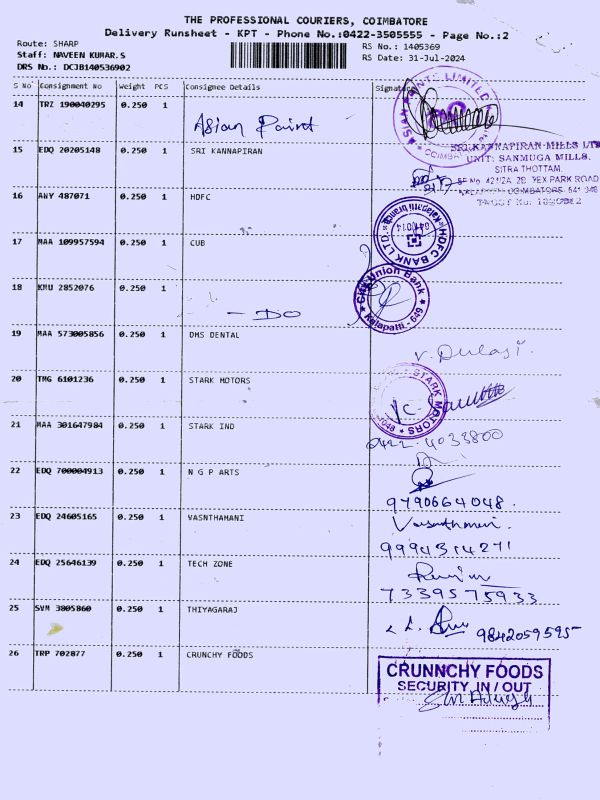 THE PROFESSIONAL COURIERS, COIMBATORE
Delivery Runsheet - KPT - Phone No.:0422-3505555 - Page No.:2
Route: SHARP
Staff: NAVEEN KUMAR.S
DRS No.: DCJB140536902
RS No.: 1405369
RS Date: 31-Jul-2024
S No Consignment No Weight PCS Consignee Details Signature
14 TRZ 190040295 0.250 1
Asian Paint
ASIAN PAINTS LIMITED
COIMB
15 EDQ 20205148 0.250 1 SRI KANNAPIRAN
SRI KANNAPIRAN MILLS LTD
UNIT: SANMUGA MILLS,
SITRA THOTTAM,
PARK ROAD
16 ANY 487071 0.250 1 HDFC
HDFC BANK LTD.
641 014
17 MAA 109957594 0.250 1 CUB
City Union Bank
Kalapatti - 649
18 KMU 2852076 0.250 1
- DO
19 MAA 573005856 0.250 1 DMS DENTAL
V. Dulasi.
20 TMG 6101236 0.250 1 STARK MOTORS
STARK MOTORS
21 MAA 301647984 0.250 1 STARK IND
0422-4033800
22 EDQ 700004913 0.250 1 N G P ARTS
9790664048.
23 EDQ 24605165 0.250 1 VASNTHAMANI
Vasanthamani.
9994314271
24 EDQ 25646139 0.250 1 TECH ZONE
7339575933
25 SVM 3805860 0.250 1 THIYAGARAJ
9842059595
26 TRP 702877 0.250 1 CRUNCHY FOODS
CRUNNCHY FOODS
SECURITY IN / OUT